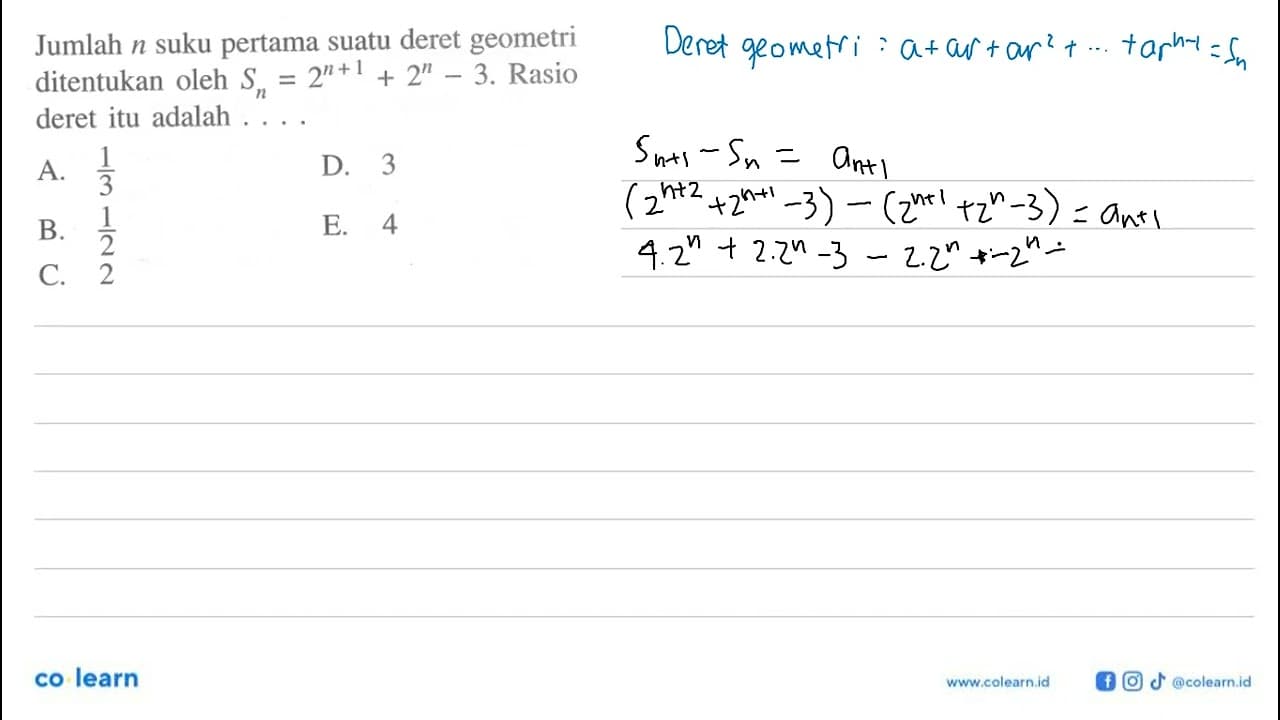 Jumlah n suku pertama suatu deret geometri
ditentukan oleh Sₙ = 2ⁿ⁺¹ + 2ⁿ – 3. Rasio
deret itu adalah . . . .
A. 1/3
B. 1/2
C. 2
D. 3
E. 4
Deret geometri : a + ar + ar² + ... + arⁿ⁻¹ = Sₙ
Sₙ₊₁ – Sₙ = aₙ₊₁
(2ⁿ⁺² + 2ⁿ⁺¹ – 3) – (2ⁿ⁺¹ + 2ⁿ – 3) = aₙ₊₁
4.2ⁿ + 2.2ⁿ – 3 – 2.2ⁿ – 2ⁿ
co learn
www.colearn.id
@colearn.id